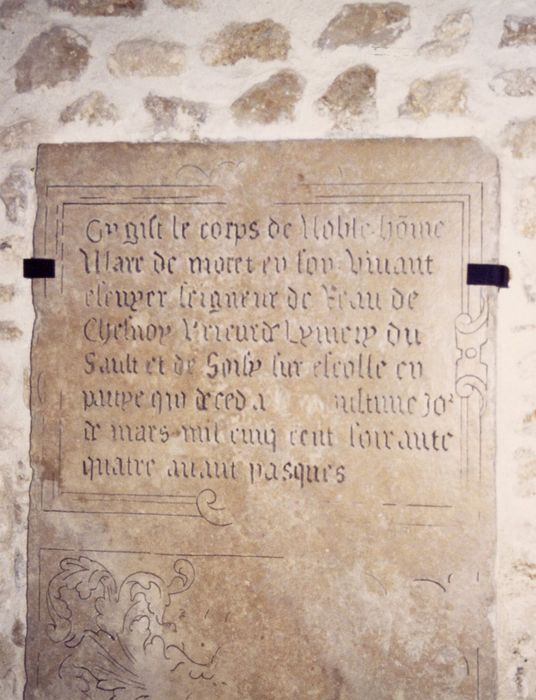 Cy gist le corps de Noble hõme
Marc de moret en son vivant
escuyer seigneur de Beau de
Chesnoy Vrieur de Lymery du
Sault et de Soisy sur escolle en
de mars mil cinq cent soixante
quatre avant pasques